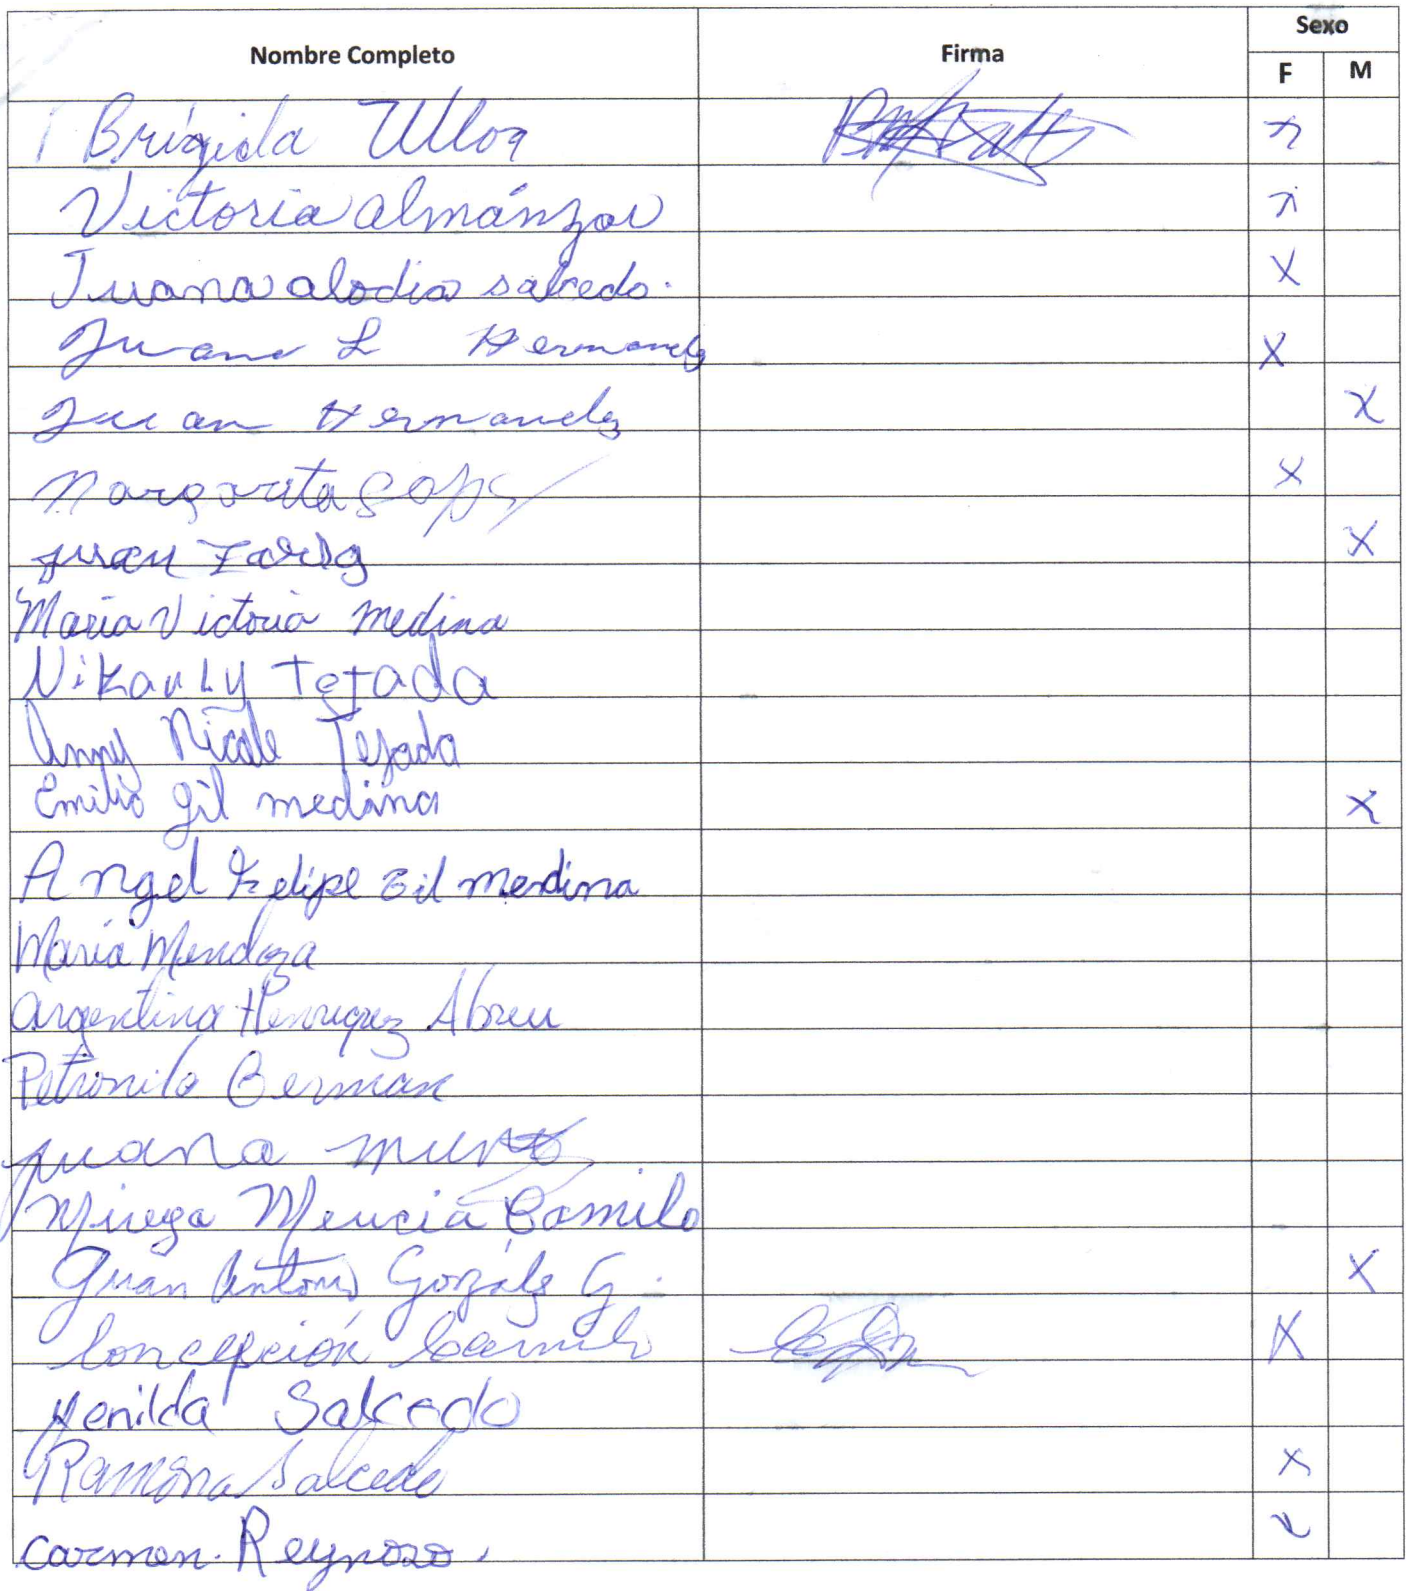 Sexo
Nombre Completo Firma
F M
Brigida Ulloa x
Victoria almánzar x
Juana alodia salcedo. X
Juana L Hernandez X
Juan Hernandez X
Margarita x
juan X
Maria Victoria medina
Nikauly Tejada
Anny Nicole Tejada
Emilio gil medina X
Angel Felipe Gil medina
Maria Mendoza
Argentina Henriquez Abreu
Petronila Berman
juana
Mencia Camilo
Juan Antonio Gonzalz G. X
Concepción Camilo X
Salcedo
Ramona Salcedo x
Carmen. Reynoso. x